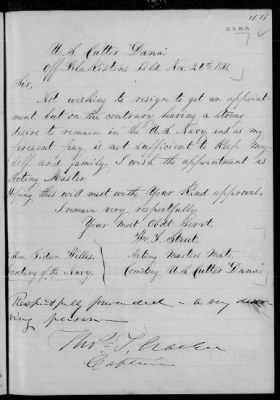 U. S. Cutter "Dana"
Off Blakistons Isld Nov. 21st 186
Sir,
Not wishing to resign to get an appoint
ment but on the contrary having a strong
desire to remain in the U.S. Navy, and as my
present pay is not sufficient to keep my
self and family, I wish the appointment as
Acting Master.
Hoping this will meet with your kind approval.
I remain very respectfully
Your Most Obdt Servt.
Wm. T. Street
Acting Masters Mate.
Comding U.S. Cutter "Dana"
Hon Gideon Welles.
Secretary of the Navy.
Respectfully forwarded - a very deser
ving person
Thos. T. Craven
Captain